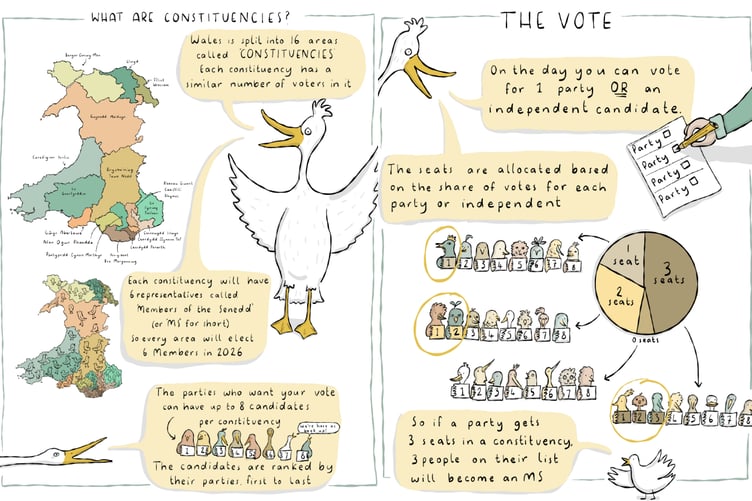 WHAT ARE CONSTITUENCIES?
Wales is split into 16 areas
called 'CONSTITUENCIES'
Each constituency has a
similar number of voters in it
Bangor Conwy Môn
Clwyd
Fflint
Wrecsam
Gwynedd Maldwyn
Ceredigion Penfro
Brycheiniog
Tawe Nedd
Sir
Gaerfyrddin
Sir
Fynwy
Torfaen
Blaenau Gwent
Caerffili
Rhymni
Gŵyr Abertawe
Afan Ogwr Rhondda
Pontypridd Cynon Merthyr
Pen-y-bont
Bro Morgannwg
Casnewydd Islwyn
Caerdydd Ffynnon Taf
Caerdydd Penarth
Each constituency will have
6 representatives called
'Members of the Senedd'
(or 'MS' for short)
So every area will elect
6 Members in 2026
The parties who want your vote
can have up to 8 candidates
per constituency
1 2 3 4 5 6 7 8
The candidates are ranked by
their parties, first to last
THE VOTE
On the day you can vote
for 1 party OR an
independent candidate.
Party
Party
Party
Party
The seats are allocated based
on the share of votes for each
party or independent
1 2 3 4 5 6 7 8
1
seat
3
seats
2
seats
0 seats
1 2 3 4 5 6 7 8
1 2 3 4 5 6 7 8
1 2 3 4 5 6 7 8
So if a party gets
3 seats in a constituency,
3 people on their list
will become an MS